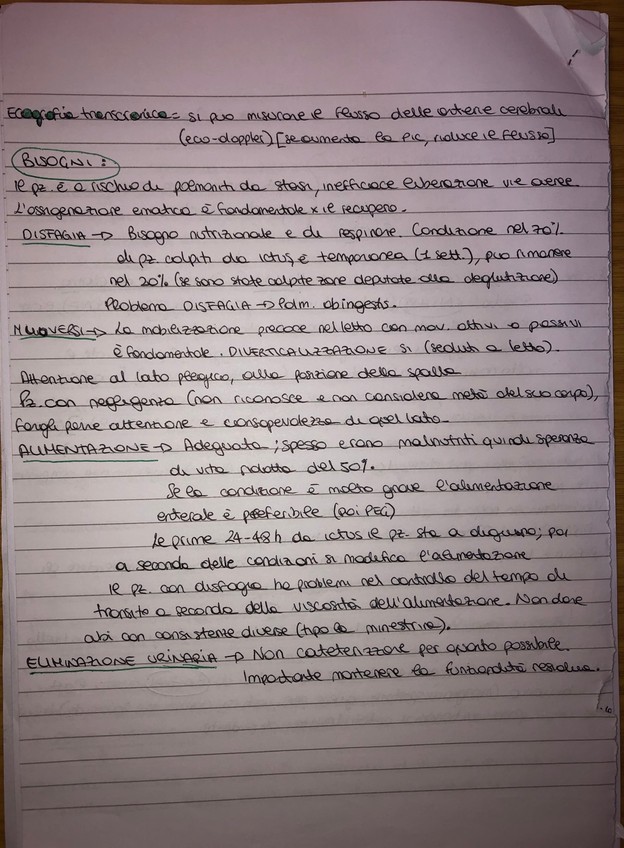 Ecografia transcranica = si può misurare il flusso delle arterie cerebrali
(eco-doppler) [se aumenta la PIC, riduce il flusso]
BISOGNI:
Il pz. è a rischio di polmoniti da stasi, inefficace liberazione vie aeree.
L'ossigenazione ematica è fondamentale x il recupero.
DISFAGIA → Bisogno nutrizionale e di respirare. Condizione nel 70%
di pz. colpiti da ictus, è temporanea (1 sett.), può rimanere
nel 20% (se sono state colpite zone deputate alla deglutizione)
Problema DISFAGIA → Polm. ab ingestis.
MUOVERSI → La mobilizzazione precoce nel letto con mov. attivi o passivi
è fondamentale. DIVERTICALIZZAZIONE SI (seduti a letto).
Attenzione al lato plegico, alla posizione della spalla
Pz. con negligenza (non riconosce e non considera metà del suo corpo),
fargli porre attenzione e consapevolezza di quel lato.
ALIMENTAZIONE → Adeguata; spesso erano malnutriti quindi speranza
di vita ridotta del 50%.
Se la condizione è molto grave l'alimentazione
enterale è preferibile (poi PEG)
Le prime 24-48h da ictus il pz. sta a digiuno; poi
a seconda delle condizioni si modifica l'alimentazione
Il pz. con disfagia ha problemi nel controllo del tempo di
transito a seconda della viscosità dell'alimentazione. Non dare
cibi con consistenze diverse (tipo la minestrina).
ELIMINAZIONE URINARIA → Non cateterizzare per quanto possibile.
Importante mantenere la funzionalità residua.